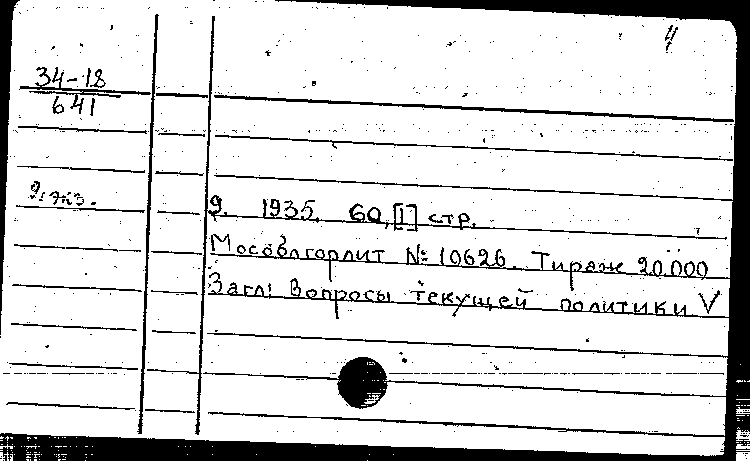 4
34-18
641
2 экз.
9. 1935. 60,[1] стр.
Мособлгорлит № 10626. Тираж 20.000
Загл: Вопросы текущей политики V